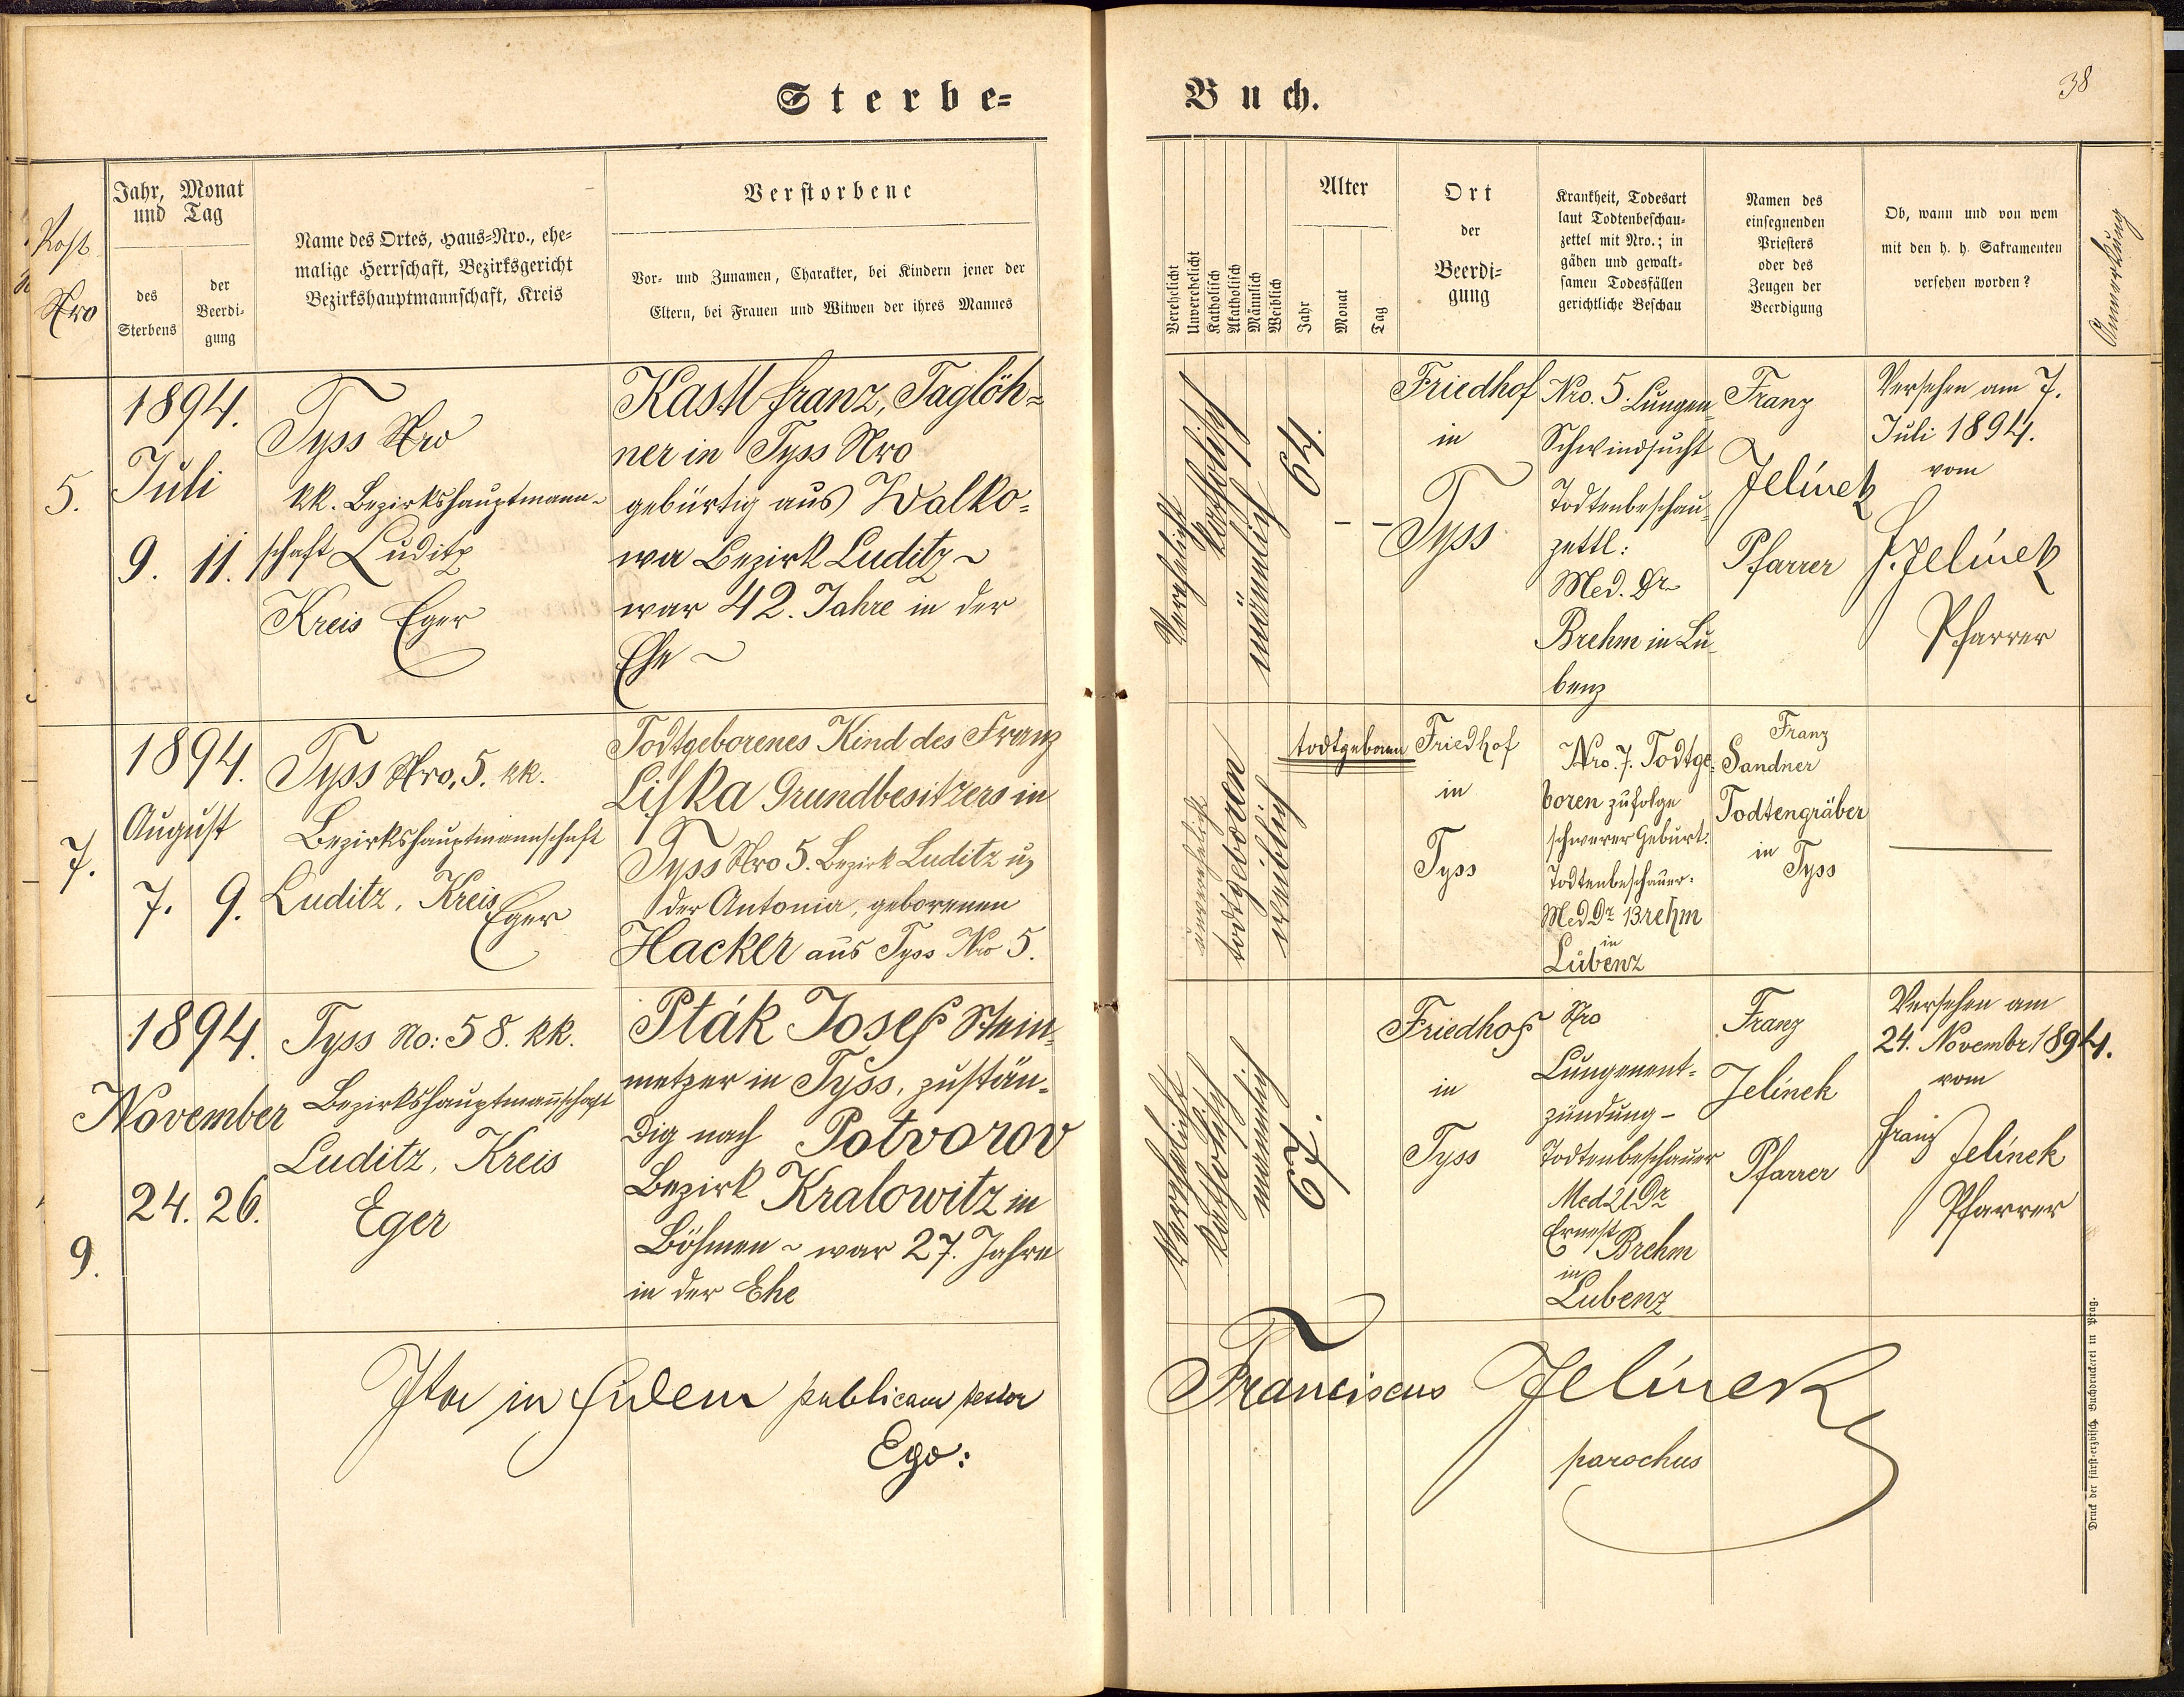 Sterbe-
Buch.
38
Post
Nro
Jahr, Monat
und Tag
des
Sterbens
der
Beerdi-
gung
Name des Ortes, Haus-Nro., ehe-
malige Herrschaft, Bezirksgericht
Bezirkshauptmannschaft, Kreis
Verstorbene
Vor- und Zunamen, Charakter, bei Kindern jener der
Eltern, bei Frauen und Witwen der ihres Mannes
Verehelicht
Unverehelicht
Katholisch
Akatholisch
Männlich
Weiblich
Alter
Jahr
Monat
Tag
Ort
der
Beerdi-
gung
Krankheit, Todesart
laut Todtenbeschau-
zettel mit Nro.; in
gähen und gewalt-
samen Todesfällen
gerichtliche Beschau
Namen des
einsegnenden
Priesters
oder des
Zeugen der
Beerdigung
Ob, wann und von wem
mit den h. h. Sakramenten
versehen worden?
Anmerkung
5.
1894.
Juli
9. 11.
Tyss Nro
kk. Bezirkshauptmann-
schaft Luditz
Kreis Eger
Kastl Franz, Taglöh-
ner in Tyss Nro
gebürtig aus Walko-
wa Bezirk Luditz ~
war 42. Jahre in der
Ehe ~
Verehelicht
katholisch
männlich
64.
– –
Friedhof
in
Tyss
Nro. 5. Lungen-
Schwindsucht
Todtenbeschau-
zettl:
Med. Dr
Brehm in Lu-
benz
Franz
Jelínek
Pfarrer
Versehen am 7.
Juli 1894.
vom
F. Jelínek
Pfarrer
7.
1894.
August
7. 9.
Tyss Nro. 5. kk.
Bezirkshauptmannschaft
Luditz, Kreis
Eger
Todtgeborenes Kind des Franz
Liška Grundbesitzers in
Tyss Nro 5. Bezirk Luditz u,
der Antonia, geborenen
Hacker aus Tyss Nro 5.
unverehelicht
todtgeboren
weiblich
todtgeboren
Friedhof
in
Tyss
Nro. 7. Todtge-
boren zufolge
schwerer Geburt.
Todtenbeschauer:
Med Dr Brehm
in
Lubenz
Franz
Sandner
Todtengräber
in Tyss
9.
1894.
November
24. 26.
Tyss No: 58. kk.
Bezirkshauptmannschaft
Luditz, Kreis
Eger
Pták Josef Stein-
metzer in Tyss, zustän-
dig nach Potvorov
Bezirk Kralowitz in
Böhmen ~ war 27. Jahre
in der Ehe
Verehelicht
katholisch
männlich
Friedhof
in
Tyss
Nro
Lungenent-
zündung –
Todtenbeschauer
Ernest Brehm
in
Lubenz
Franz
Jelínek
Pfarrer
Versehen am
24. Novembr 1894.
vom
Franz Jelínek
Pfarrer
Ita in fidem publicam testor
Ego:
Franciscus Jelínek
parochus
Druck der fürst-erzbisch. Buchdruckerei in Prag.